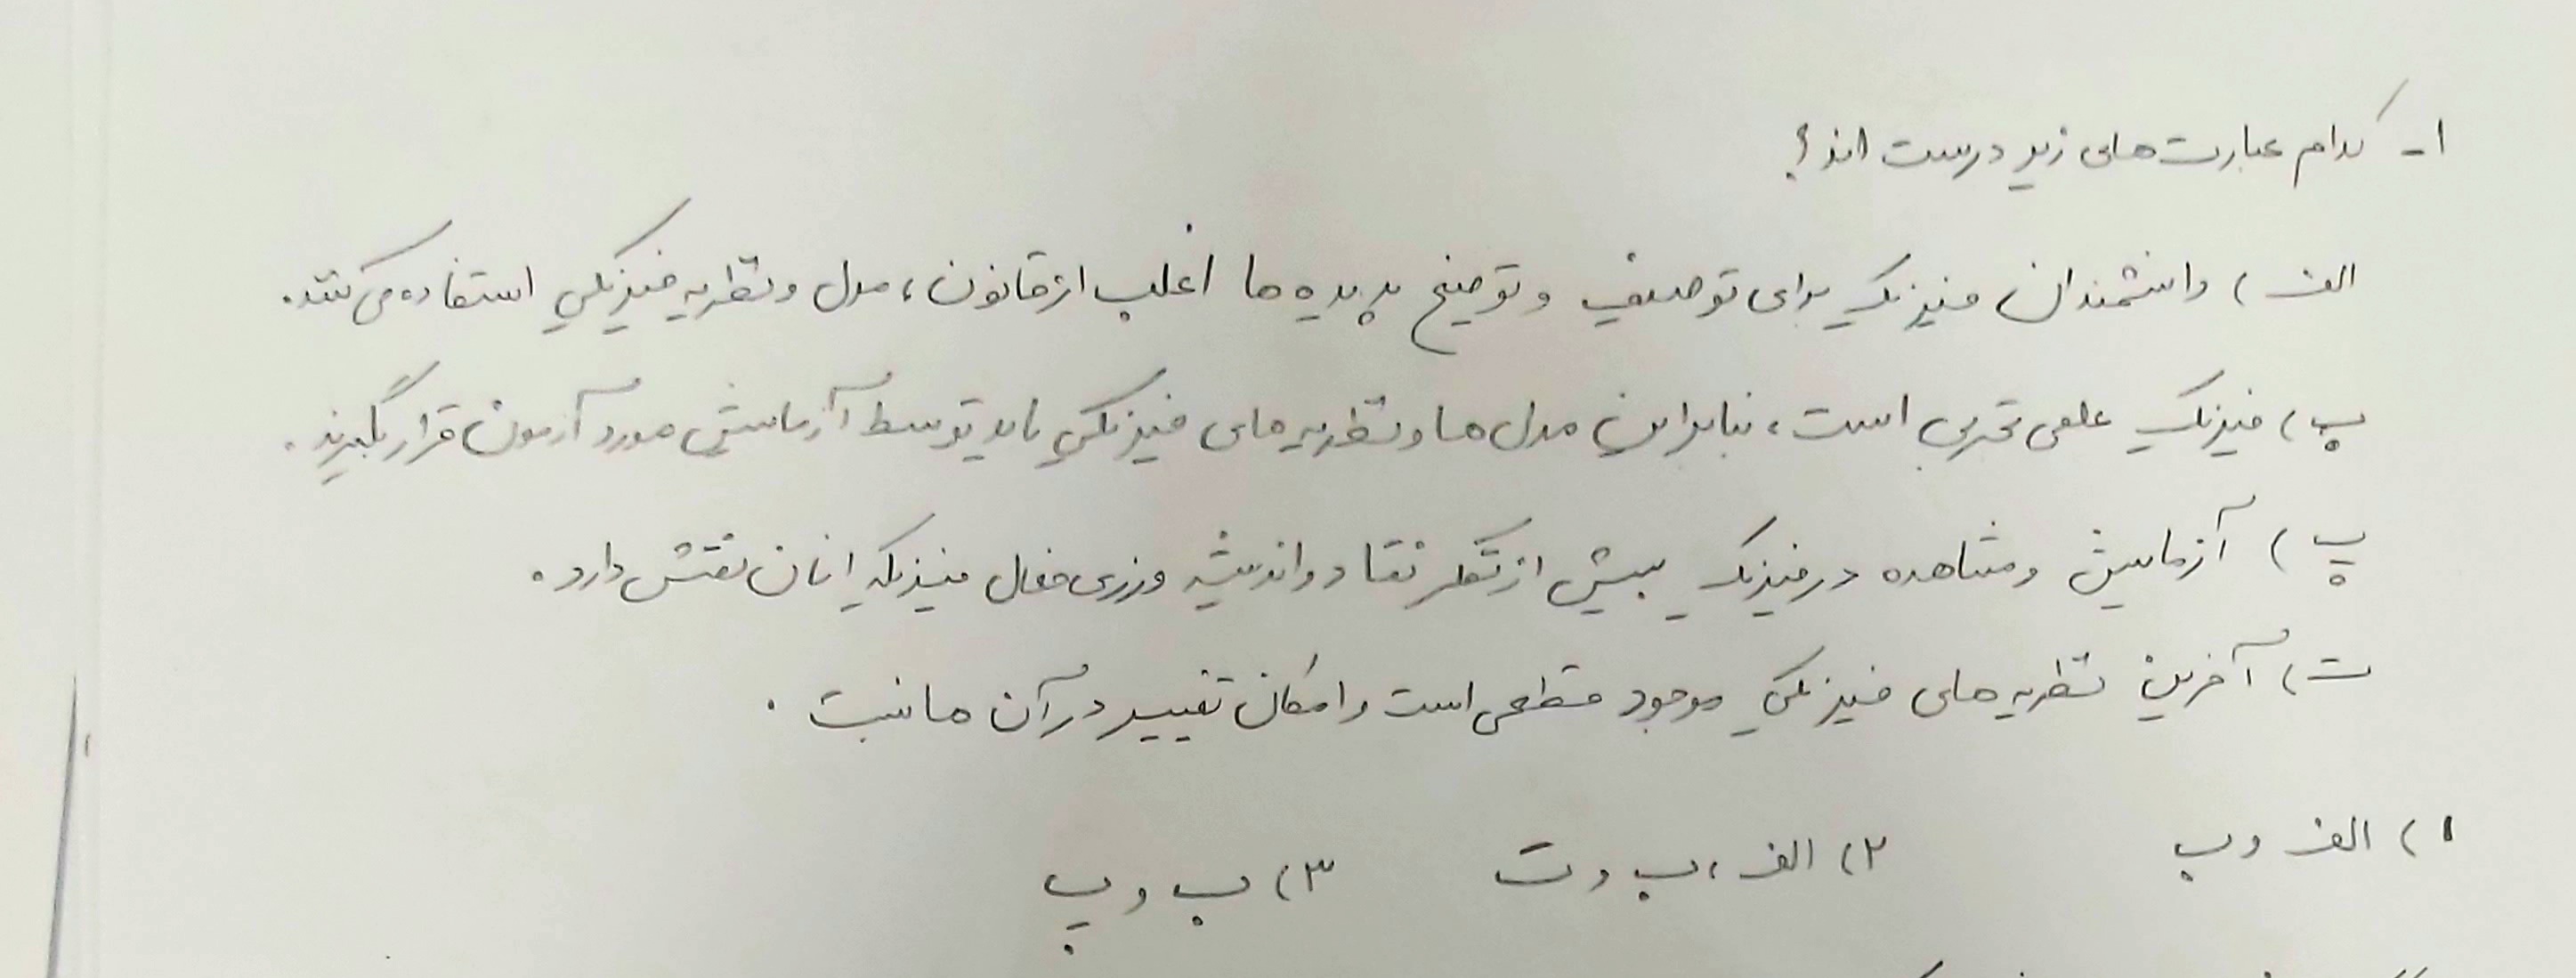 ۱- کدام عبارت‌های زیر درست اند؟
الف) دانشمندان فیزیک برای توصیف و توضیح پدیده ها اغلب از قانون، مدل و نظریه فیزیکی استفاده می کنند.
ب) فیزیک علمی تجربی است، بنابراین مدل ها و نظریه های فیزیکی باید توسط آزمایش مورد آزمون قرار بگیرند.
پ) آزمایش و مشاهده در فیزیک بیش از تفکر نقاد و اندیشه ورزی فعال فیزیک‌دانان نقش دارد.
ت) آخرین نظریه های فیزیکی موجود قطعی است و امکان تغییر در آن ها نیست.
۱) الف و ب ۲) الف، ب و ت ۳) ب و پ